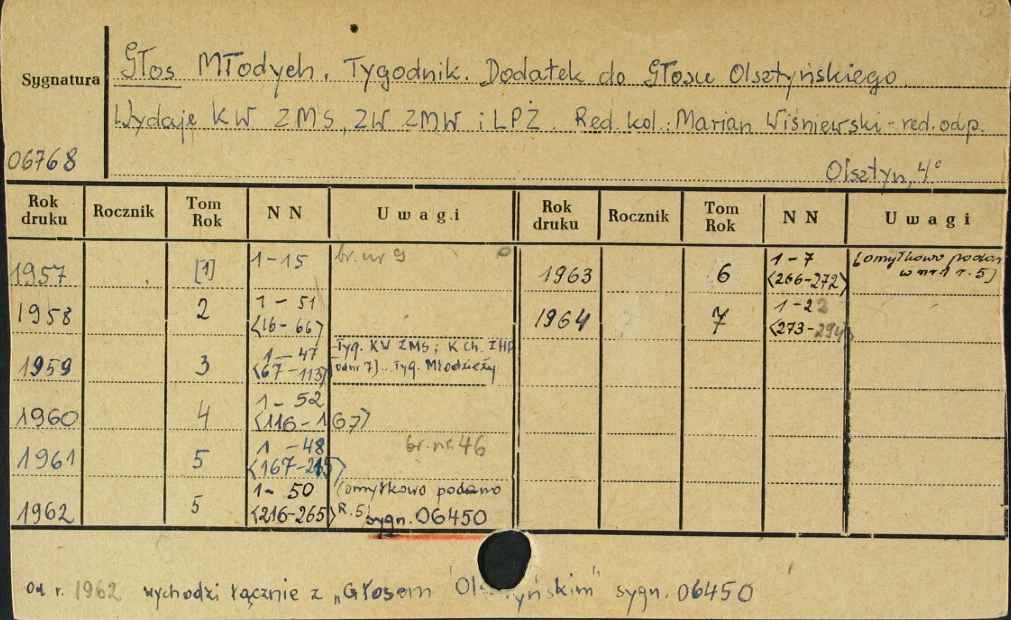 Głos Młodych. Tygodnik. Dodatek do Głosu Olsztyńskiego.
Sygnatura
Wydaje KW ZMS, ZW ZMW i LPŻ. Red. kol.: Marian Wiśniewski - red. odp.
06768
Olsztyn, 4°
Rok druku Rocznik Tom Rok NN Uwagi Rok druku Rocznik Tom Rok NN Uwagi
1957 [1] 1-15 br. nr 9 1963 6 1-7 (omyłkowo podano
<266-272> w nr 1 r. 5)
1958 2 1-51 1964 7 1-22
<16-66> <273-294>
1959 3 1-47 Tyg. KW ZMS; K Ch. ZHP
<67-115> [od nr 7]... Tyg. Młodzieży
1960 4 1-52
<116-167>
1961 5 1-48 br. nr. 46
<167-215>
1962 5 1-50 (omyłkowo podano
<216-265> R. 5) sygn. 06450
Od r. 1962 wychodzi łącznie z „Głosem Olsztyńskim" sygn. 06450